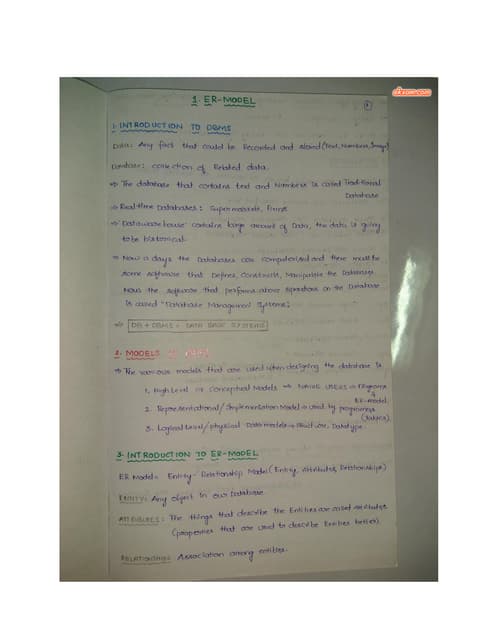 1. ER-MODEL
1. INTRODUCTION TO DBMS
Data: Any fact that could be Recorded and stored (Text, Numbers, Image)
Database: collection of Related data.
⇒ The database that contains text and Numbers is called Traditional
Database
⇒ Real-time Databases: Supermarkets,
⇒ Dataware house contains large amount of Data, the data is going
to be historical.
⇒ Now a days the Databases are computerised and there must be
some software that Defines, Constructs, Manipulate the Databases
the software that performs above operations on the Database
is called "Database Management Systems;
⇒ DB + DBMS = DATA BASE SYSTEMS
2. MODELS
⇒ The various models that are used when designing the database is
1. High Level or Conceptual Models → NAIVE USERS →
ER-model.
2. Representational/Implementation Model → used by
(tables)
3. Logical Level/physical Data models → Structure, Datatype.
3. INTRODUCTION TO ER-MODEL
ER Model = Entity-Relationship Model (Entity, Attributes, Relationships)
ENTITY: Any object in our Database
ATTRIBUTES: The things that describe the Entities are called attributes
(properties that are used to describe Entities better).
RELATIONSHIP: Association among entities.